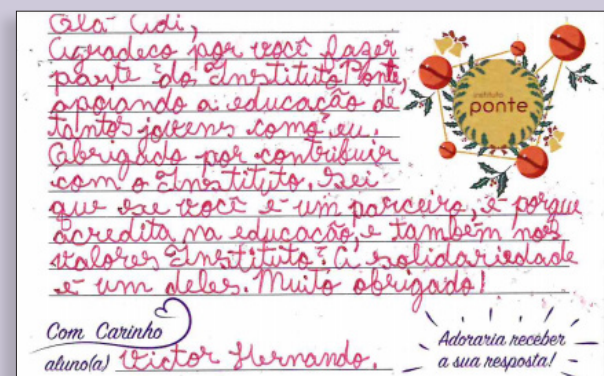 Olá Cidi,
Agradeço por você fazer
parte do Instituto Ponte,
apoiando a educação de
tantos jovens como eu.
Obrigado por contribuir
com o Instituto. Sei
que se você é um parceiro, é porque
acredita na educação, e também nos
valores Instituto. A solidariedade
é um deles. Muito obrigado!
instituto
ponte
Com Carinho
aluno(a) Victor Hernando.
Adoraria receber
a sua resposta!